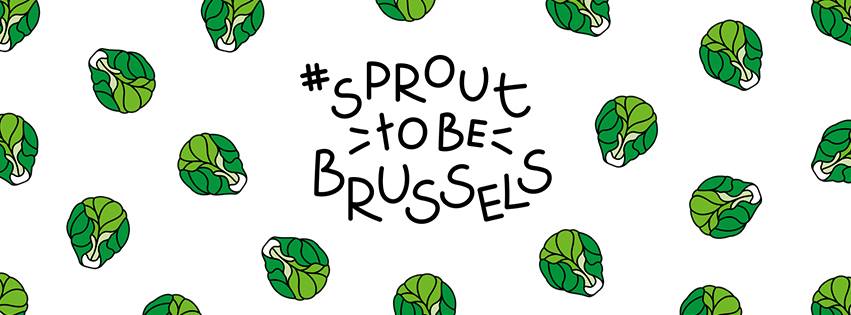 #SPROUT
TO BE
BRUSSELS